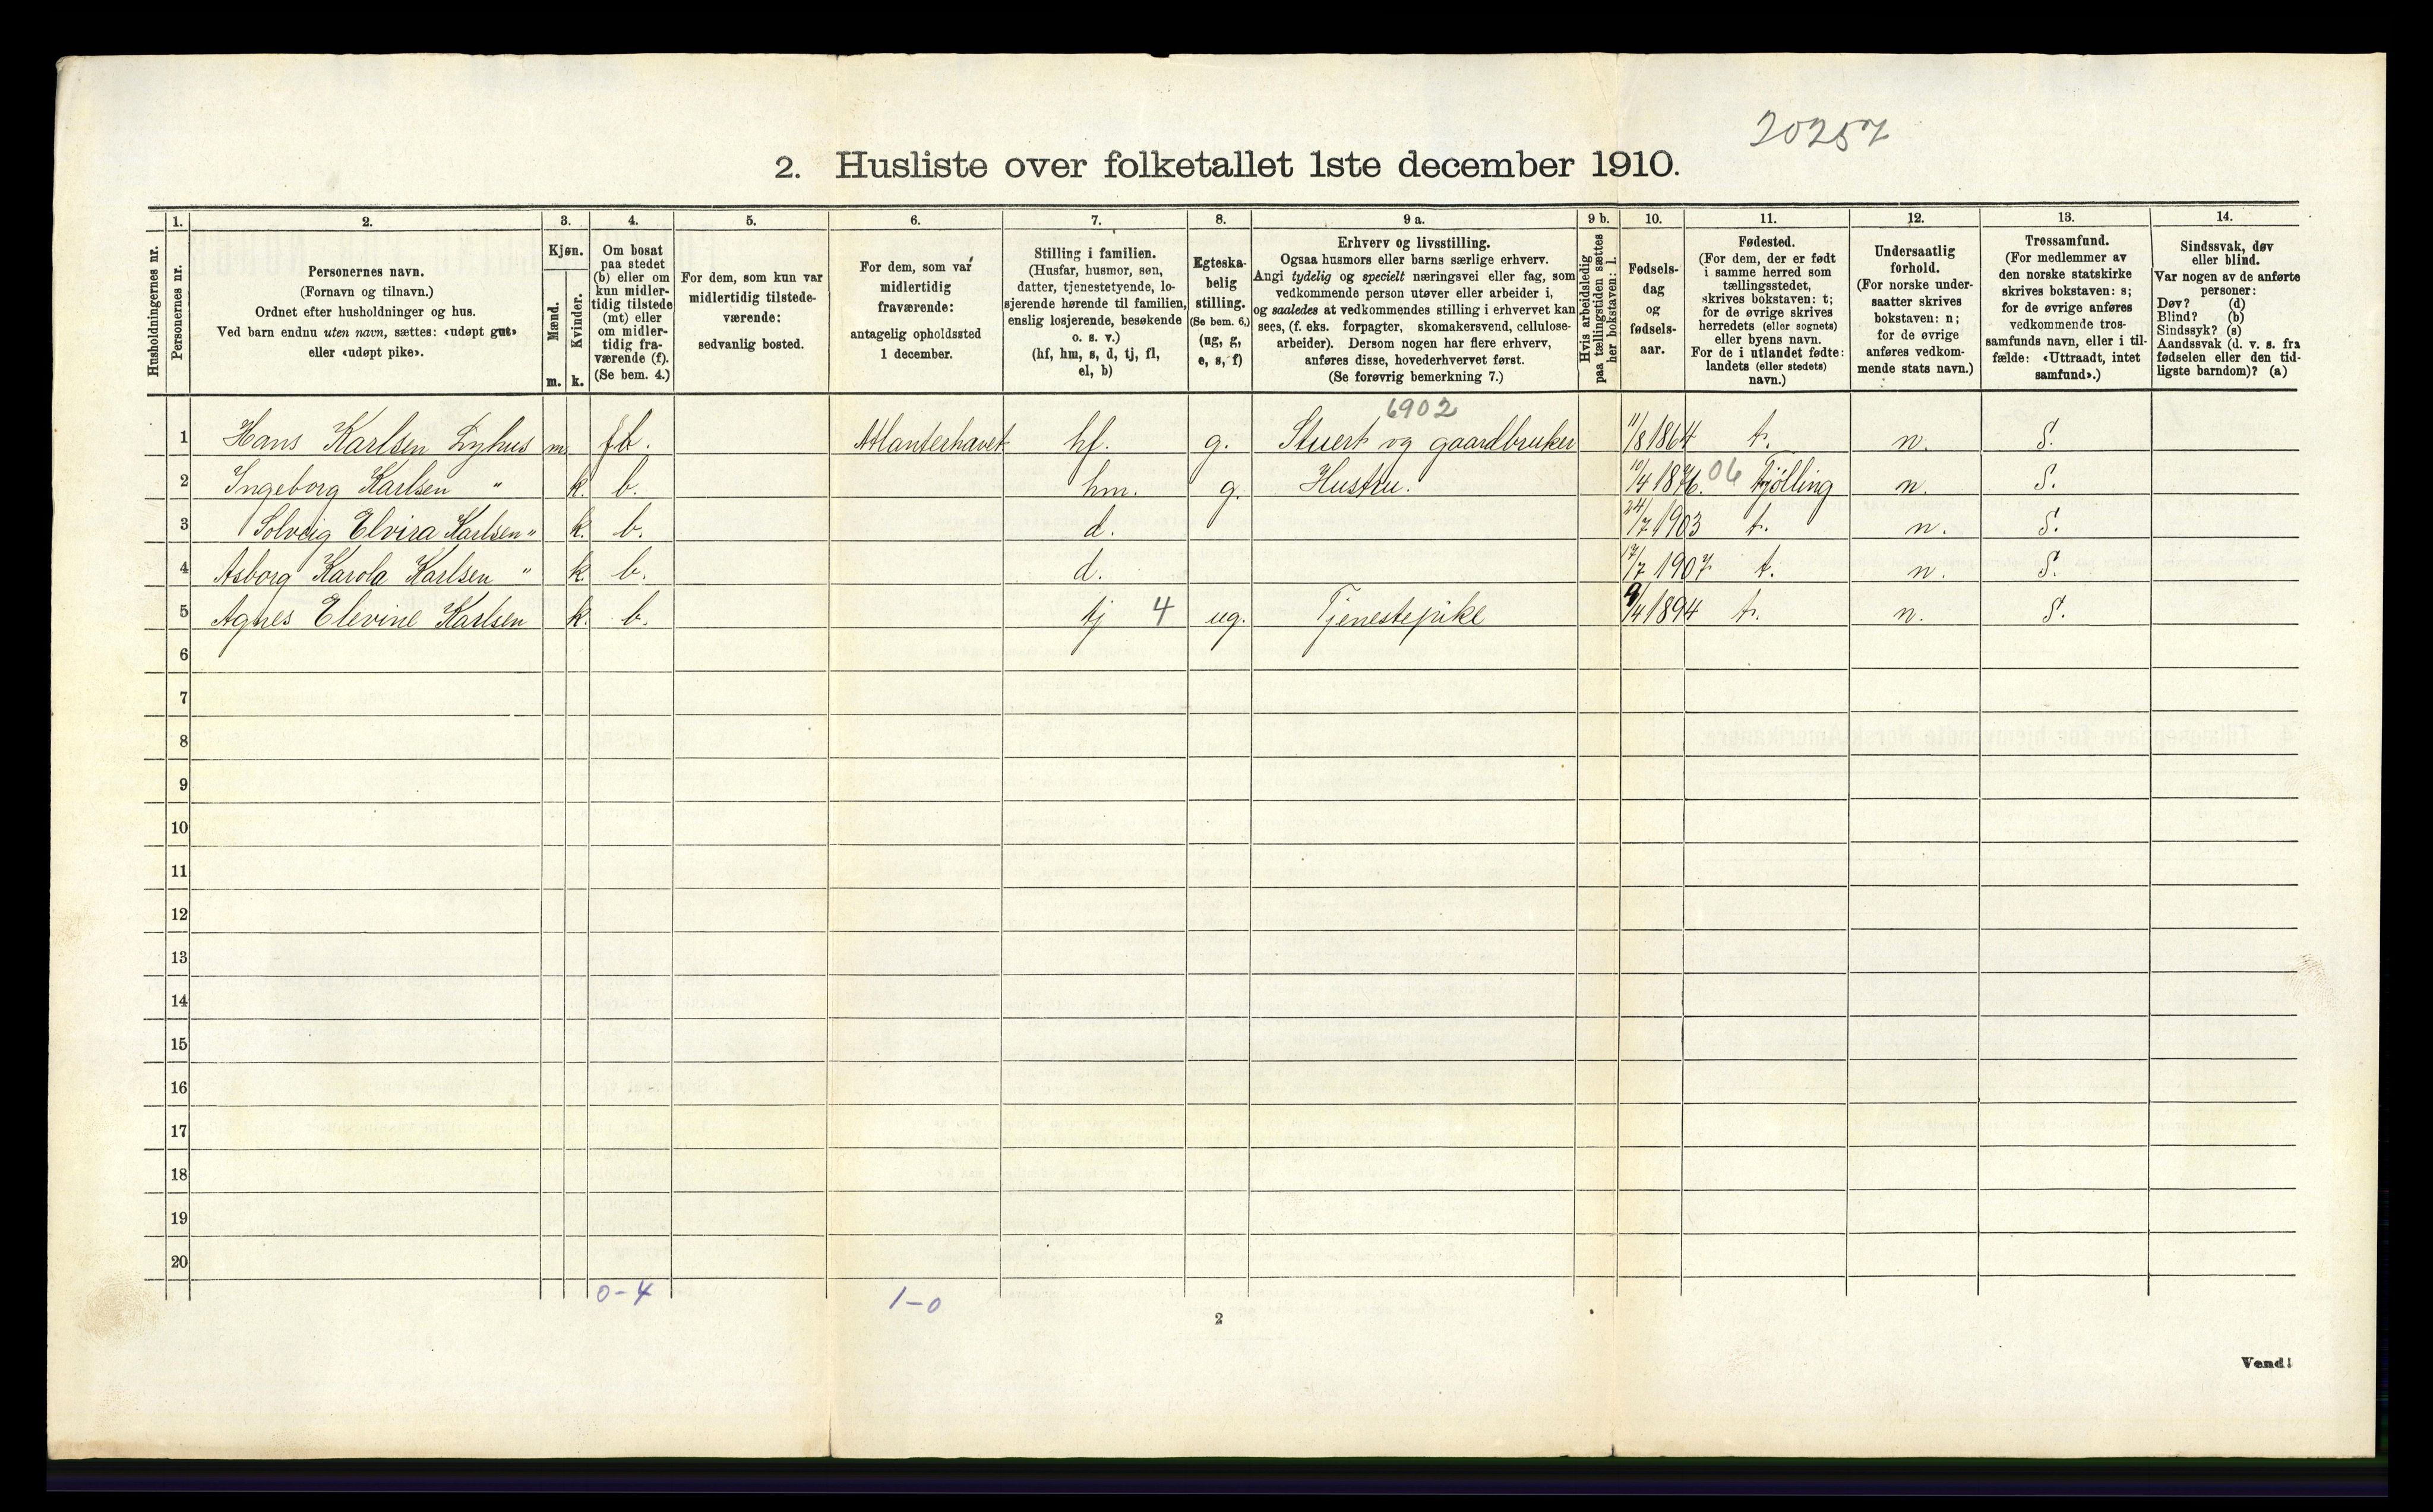 20257
2. Husliste over folketallet 1ste december 1910.
Husholdningernes nr.
1. Personernes nr.
2. Personernes navn.
(Fornavn og tilnavn.)
Ordnet efter husholdninger og hus.
Ved barn endnu uten navn, sættes: «udøpt gut»
eller «udøpt pike».
3. Kjøn.
Mænd. m.
Kvinder. k.
4. Om bosat
paa stedet
(b) eller om
kun midler-
tidig tilstede
(mt) eller
om midler-
tidig fra-
værende (f).
(Se bem. 4.)
5. For dem, som kun var
midlertidig tilstede-
værende:
sedvanlig bosted.
6. For dem, som var
midlertidig
fraværende:
antagelig opholdssted
1 december.
7. Stilling i familien.
(Husfar, husmor, søn,
datter, tjenestetyende, lo-
sjerende hørende til familien,
enslig losjerende, besøkende
o. s. v.)
(hf, hm, s, d, tj, fl,
el, b)
8. Egteska-
belig
stilling.
(Se bem. 6.)
(ug, g,
e, s, f)
9 a. Erhverv og livsstilling.
Ogsaa husmors eller barns særlige erhverv.
Angi tydelig og specielt næringsvei eller fag, som
vedkommende person utøver eller arbeider i,
og saaledes at vedkommendes stilling i erhvervet kan
sees, (f. eks. forpagter, skomakersvend, cellulose-
arbeider). Dersom nogen har flere erhverv,
anføres disse, hovederhvervet først.
(Se forøvrig bemerkning 7.)
9 b. Hvis arbeidsledig
paa tællingstiden sættes
her bokstaven: l.
10. Fødsels-
dag
og
fødsels-
aar.
11. Fødested.
(For dem, der er født
i samme herred som
tællingsstedet,
skrives bokstaven: t;
for de øvrige skrives
herredets (eller sognets)
eller byens navn.
For de i utlandet fødte:
landets (eller stedets)
navn.)
12. Undersaatlig
forhold.
(For norske under-
saatter skrives
bokstaven: n;
for de øvrige
anføres vedkom-
mende stats navn.)
13. Trossamfund.
(For medlemmer av
den norske statskirke
skrives bokstaven: s;
for de øvrige anføres
vedkommende tros-
samfunds navn, eller i til-
fælde: «Uttraadt, intet
samfund».)
14. Sindssvak, døv
eller blind.
Var nogen av de anførte
personer:
Døv? (d)
Blind? (b)
Sindssyk? (s)
Aandssvak (d. v. s. fra
fødselen eller den tid-
ligste barndom)? (a)
6902
1 Hans Karlsen Lyhus m. f b. Atlanterhavet hf. g. Stuert og gaardbruker 11/8 1864 t. n. S.
2 Ingeborg Karlsen " k. b. hm. g. Hustru. 10/4 1876. 06 Tjølling n. S.
3 Solveig Elvira Karlsen " k. b. d. 24/7 1903 t. n. S.
4 Asborg Karola Karlsen " k. b. d. 17/7 1907 t. n. S.
5 Agnes Elevine Karlsen k. b. tj 4 ug. Tjenestepike 9/4 1894 t. n. S.
6
7
8
9
10
11
12
13
14
15
16
17
18
19
20
0-4 1-0
2
Vend!